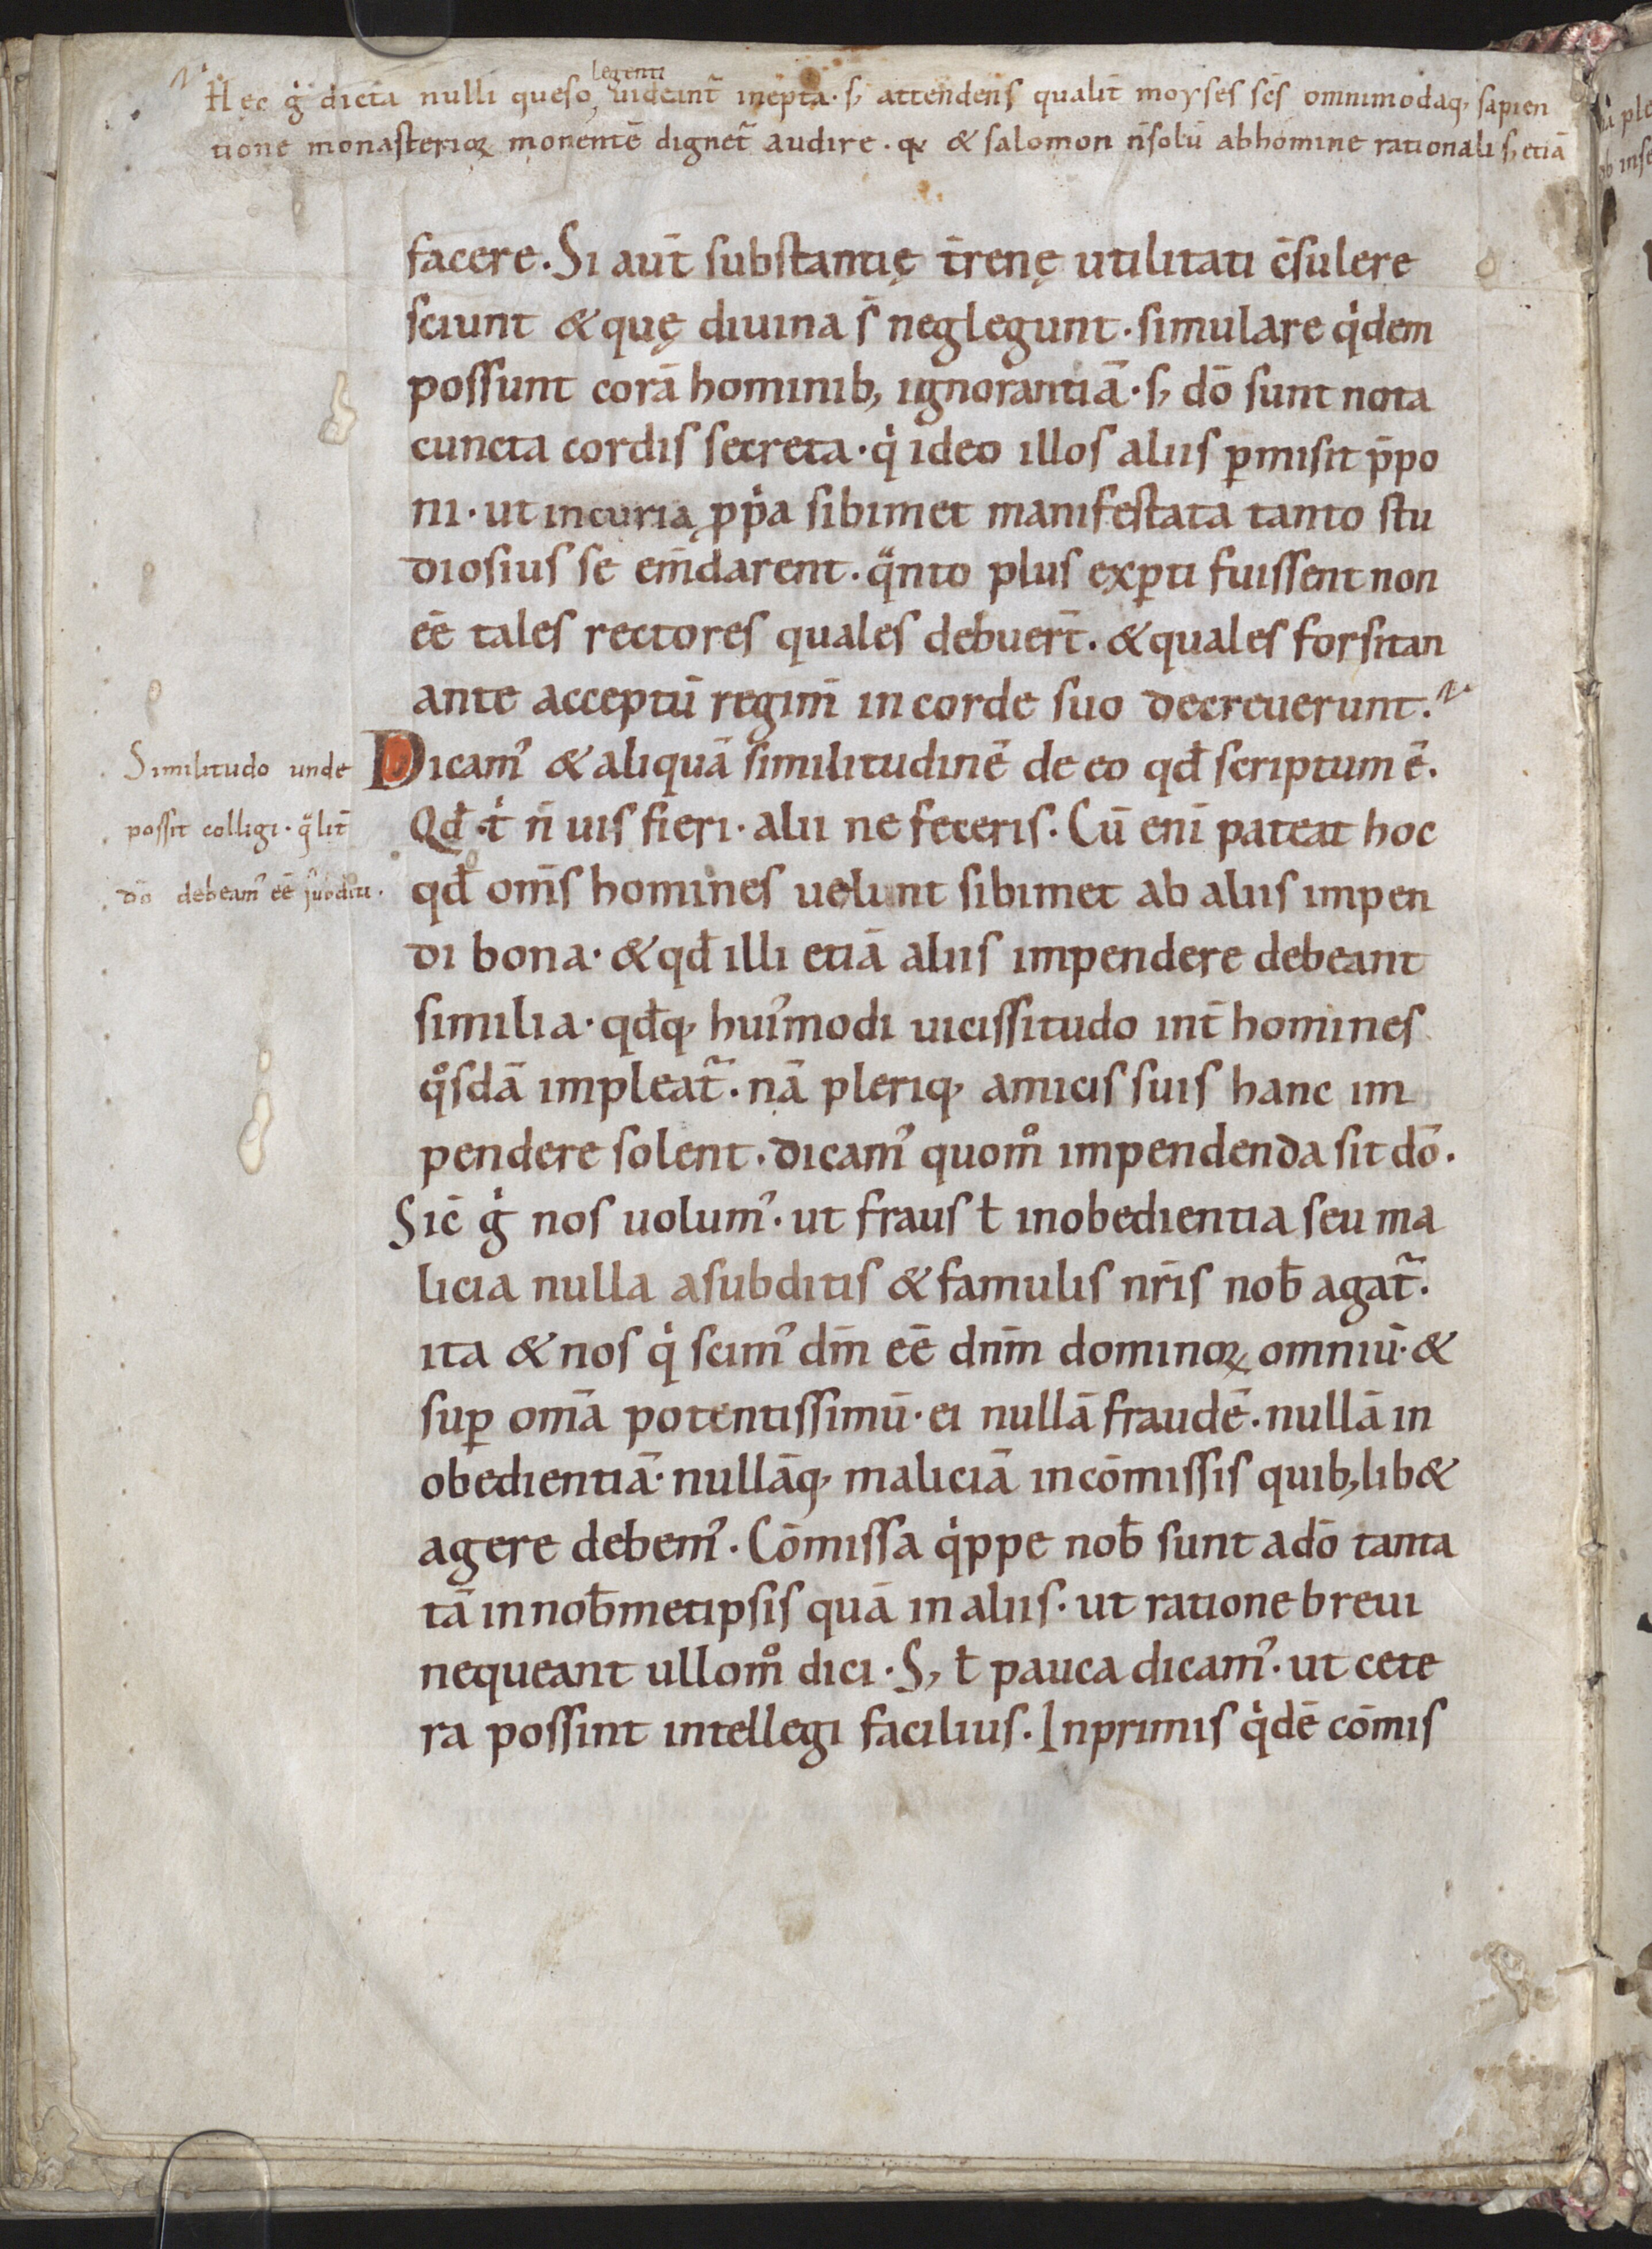 legenti
Hec g̍ dicta nulli queso uideint᷑ inepta · s; attendens qualit̄ moyses sc̄s omnimodaq; sapien
tione monasterioꝝ monentē dignet᷑ audire . & salomon n̄ solū ab homine rationali s; etiā
facere. Si aut̄ substantię t̄renę utilitati c̄sulere
sciunt & quę diuina s̄ neglegunt · simulare q̍dem
possunt corā hominib; ignorantiā · s; dō sunt nota
cuncta cordis secreta · q̍ ideo illos aliis ꝑmisit p̄po
ni · ut incuria ꝓp̍a sibimet manifestata tanto stu
diosius se em̄darent . qᷓnto plus exꝑti fuissent non
eē tales rectores quales debuer̄t . & quales forsitan
ante acceptū regim̄ in corde suo decreuerunt.
Similitudo unde
possit colligi · qᷓlit̄
dō debeam᾽ eē subditi .
Dicam᾽ & aliquā similitudinē de eo qđ scriptum ē .
Qđ t̍ n̄ uis fieri · alii ne feceris . Cū eni̅ pateat hoc
qđ om̄s homines uelunt sibimet ab aliis impen
di bona · & qđ illi etiā aliis impendere debeant
similia · qđq; hui᾽modi uicissitudo int̄ homines
qͦsdā impleat᷑ . nā pleriq; amicis suis hanc im
pendere solent . dicam᾽ quomͦ impendenda sit dō .
Sic̄ g̍ nos uolum᾽ . ut fraus ł inobedientia seu ma
licia nulla a subditis & famulis nr̄is nob̄ agat᷑ .
ita & nos q̍ scim᾽ dm̄ eē dn̄m dominoꝝ omniū · &
suꝑ om̄a potentissimū · ei nullā fraudē . nullā in
obedientiā · nullāq; maliciā in cōmissis quib; lib&
agere debem᾽ . Cōmissa q̍ppe nob̄ sunt a dō tanta
tā in nob̄metipsis quā in aliis · ut ratione breui
nequeant ullomͦ dici . S; ł pauca dicam᾽ . ut cete
ra possint intellegi facilius . Inprimis q̍dē cōmis